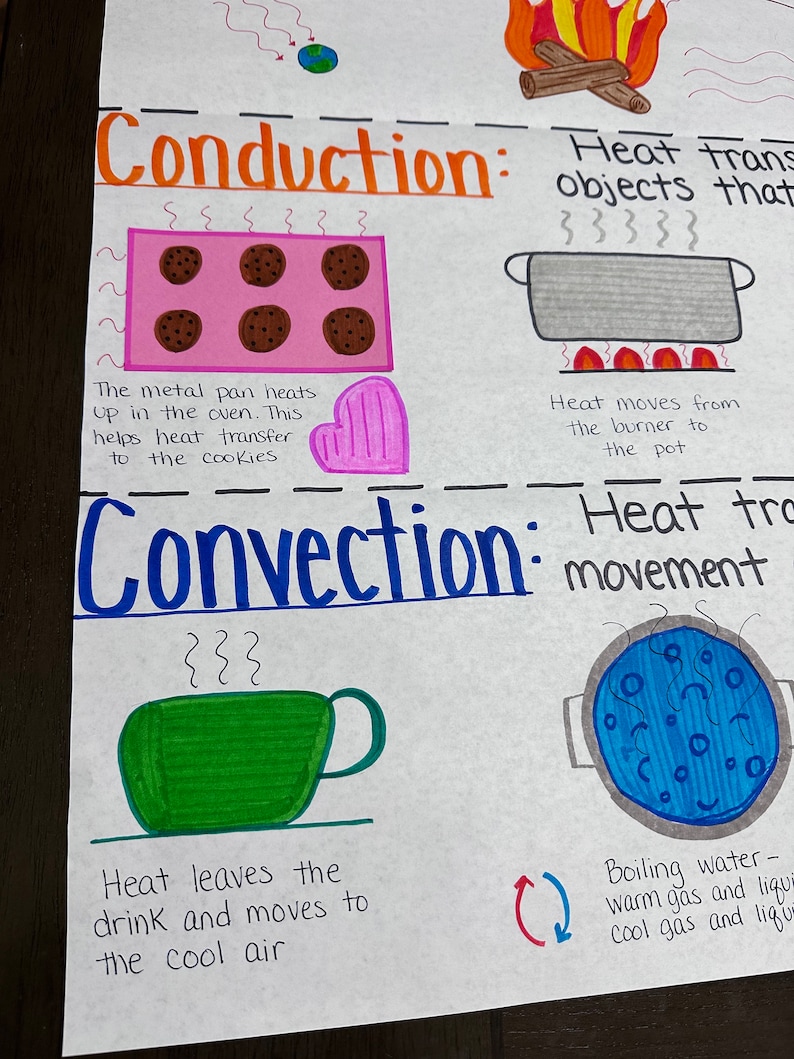 Conduction:
Heat trans
objects that
The metal pan heats
up in the oven. This
helps heat transfer
to the cookies
Heat moves from
the burner to
the pot
Convection:
Heat tra
movement
Heat leaves the
drink and moves to
the cool air
Boiling water-
warm gas and liqui
cool gas and liqu